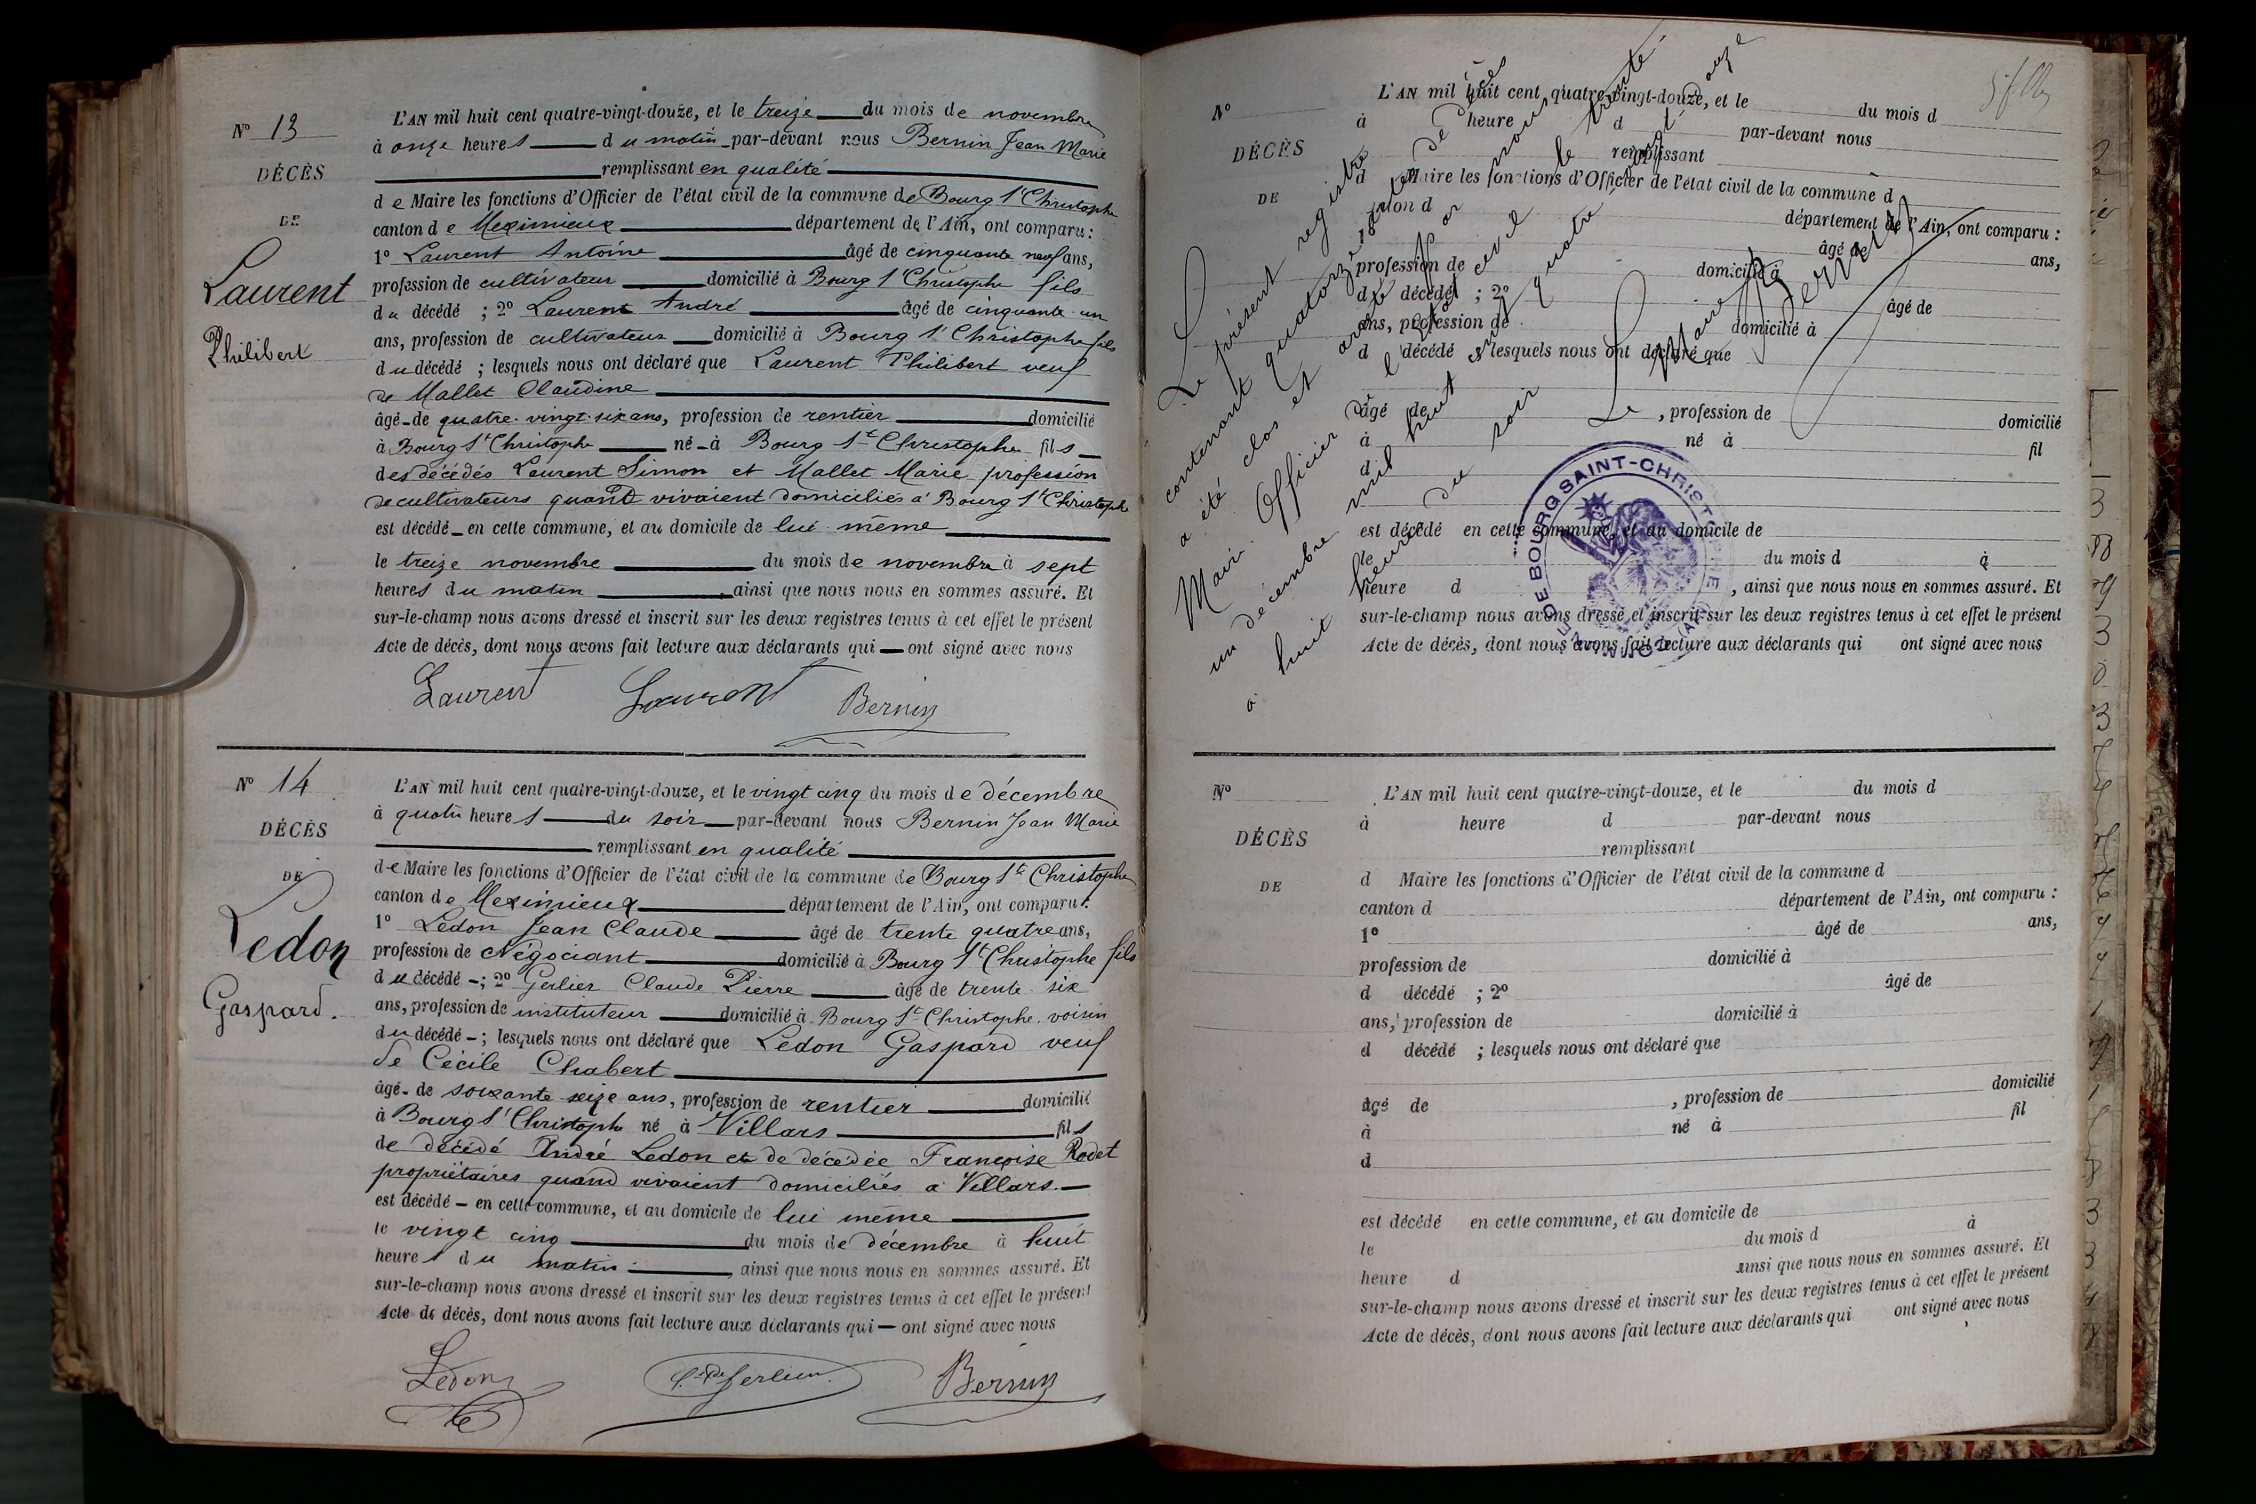 Nº 13
DÉCÈS
DE
Laurent
Philibert
L'AN mil huit cent quatre-vingt-douze, et le treize du mois de novembre
à onze heures du matin par-devant nous Bernin Jean Marie
remplissant en qualité
de Maire les fonctions d'Officier de l'état civil de la commune de Bourg St Christophe
canton de Meximieux département de l'Ain, ont comparu :
1º Laurent Antoine âgé de cinquante neuf ans,
profession de cultivateur domicilié à Bourg St Christophe fils
du décédé ; 2º Laurent André âgé de cinquante un
ans, profession de cultivateur domicilié à Bourg St Christophe fils
du décédé ; lesquels nous ont déclaré que Laurent Philibert veuf
de Mallet Claudine
âgé de quatre-vingt-six ans, profession de rentier domicilié
à Bourg St Christophe né à Bourg St Christophe fils
des décédés Laurent Simon et Mallet Marie profession
de cultivateurs quand vivaient domiciliés à Bourg St Christophe
est décédé en cette commune, et au domicile de lui même
le treize novembre du mois de novembre à sept
heures du matin ainsi que nous nous en sommes assuré. Et
sur-le-champ nous avons dressé et inscrit sur les deux registres tenus à cet effet le présent
Acte de décès, dont nous avons fait lecture aux déclarants qui ont signé avec nous
Laurent Laurent Bernin
Nº 14
DÉCÈS
DE
Ledon
Gaspard.
L'AN mil huit cent quatre-vingt-douze, et le vingt cinq du mois de décembre
à quatre heures du soir par-devant nous Bernin Jean Marie
remplissant en qualité
de Maire les fonctions d'Officier de l'état civil de la commune de Bourg St Christophe
canton de Meximieux département de l'Ain, ont comparu :
1º Ledon Jean Claude âgé de trente quatre ans,
profession de Négociant domicilié à Bourg St Christophe fils
du décédé ; 2º Gerlier Claude Pierre âgé de trente six
ans, profession de instituteur domicilié à Bourg St Christophe voisin
du décédé ; lesquels nous ont déclaré que Ledon Gaspard veuf
de Cécile Chabert
âgé de soixante seize ans, profession de rentier domicilié
à Bourg St Christophe né à Villars fils
de décédé André Ledon et de décédée Françoise Rodet
propriétaires quand vivaient domiciliés à Villars.
est décédé en cette commune, et au domicile de lui même
le vingt cinq du mois de décembre à huit
heures du matin, ainsi que nous nous en sommes assuré. Et
sur-le-champ nous avons dressé et inscrit sur les deux registres tenus à cet effet le présent
Acte de décès, dont nous avons fait lecture aux déclarants qui ont signé avec nous
Ledon Gerlier Bernin
Nº
DÉCÈS
DE
L'AN mil huit cent quatre-vingt-douze, et le du mois d
à heure d par-devant nous
remplissant
d Maire les fonctions d'Officier de l'état civil de la commune d
canton d département de l'Ain, ont comparu :
âgé de ans,
profession de domicilié à
d décédé ; 2º âgé de
ans, profession de domicilié à
d décédé ; lesquels nous ont déclaré que
âgé de , profession de domicilié
à né à fil
d
est décédé en cette commune, et au domicile de
le du mois d à
heure d , ainsi que nous nous en sommes assuré. Et
sur-le-champ nous avons dressé et inscrit sur les deux registres tenus à cet effet le présent
Acte de décès, dont nous avons fait lecture aux déclarants qui ont signé avec nous
Le présent registre de décès
contenant quatorze actes
a été clos et arrêté par nous
Maire Officier de l'état civil le trente
un décembre mil huit cent quatre vingt douze
à huit heures du soir
Le Maire
Bernin
DE BOURG SAINT-CHRISTOPHE
Nº
DÉCÈS
DE
L'AN mil huit cent quatre-vingt-douze, et le du mois d
à heure d par-devant nous
remplissant
d Maire les fonctions d'Officier de l'état civil de la commune d
canton d département de l'Ain, ont comparu :
1º âgé de ans,
profession de domicilié à
d décédé ; 2º âgé de
ans, profession de domicilié à
d décédé ; lesquels nous ont déclaré que
âgé de , profession de domicilié
à né à fil
d
est décédé en cette commune, et au domicile de
le du mois d à
heure d ainsi que nous nous en sommes assuré. Et
sur-le-champ nous avons dressé et inscrit sur les deux registres tenus à cet effet le présent
Acte de décès, dont nous avons fait lecture aux déclarants qui ont signé avec nous